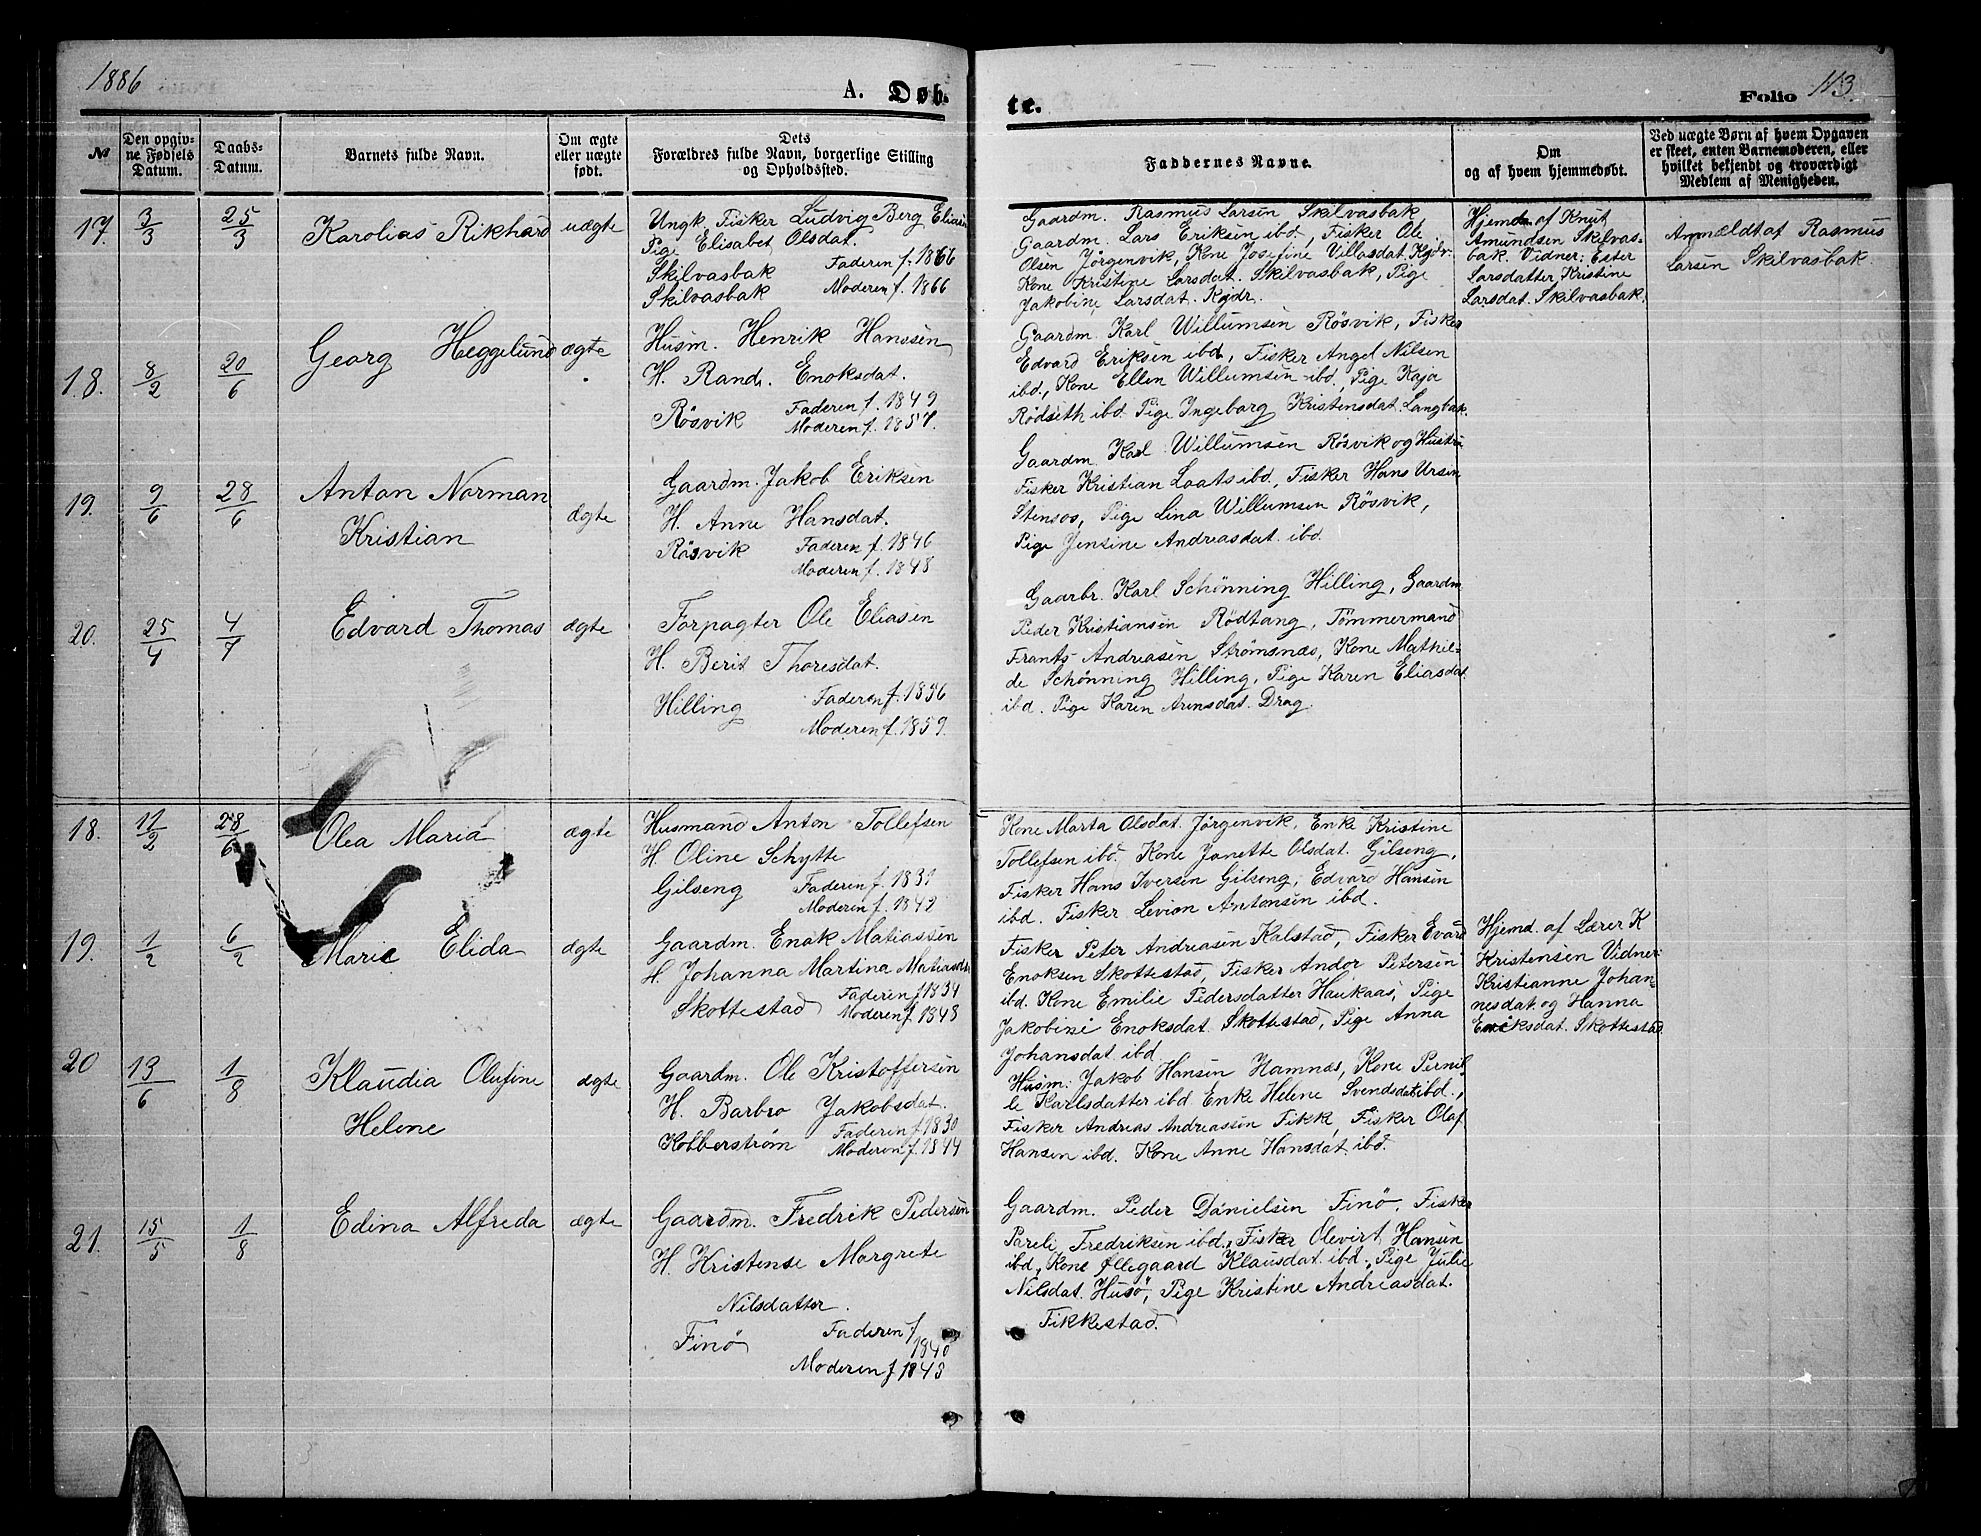 1886
A. Døb-
te.
Folio 113.
№
Den opgiv-
ne Fødsels
Datum.
Daabs-
Datum.
Barnets fulde Navn.
Om ægte
eller uægte
født.
Dets
Forældres fulde Navn, borgerlige Stilling
og Opholdssted.
Faddernes Navne.
Om
og af hvem hjemmedøbt.
Ved uægte Børn af hvem Opgaven
er skeet, enten Barnemoderen, eller
hvilket bekjendt og troværdigt
Medlem af Menigheden.
17. 3/3 25/3 Karolias Rikhard uægte
Ungk. Fisker Ludvig Berg Eliasen
Pige Elisabet Olsdat.
Skilvasbak Faderen f. 1866
Skilvasbak Moderen f. 1866
Gaardm. Rasmus Larsen Skilvasbak
Gaardm. Lars Eriksen ibd, Fisker Ole
Olsen Jörgenvik, Kone Josefine Villasdat. Kjdr.
Kone Kristine Larsdat. Skilvasbak, Pige
Jakobine Larsdat. Kjdr.
Hjemd. af Knut
Amundsen Skilvas-
bak. Vidner: Ester
Larsdatter, Kristine
Larsdat. Skilvasbak.
Anmeldt af Rasmus
Larsen Skilvasbak.
18. 8/2 20/6 Georg Heggelund ægte
Husm. Henrik Hanssen
H. Rand. Enoksdat.
Rösvik Faderen f. 1849
Moderen f. 1857.
Gaardm. Karl Willumsen Rösvik, Fisker
Edvard Eriksen ibd, Fisker Angel Nilsen
ibd., Kone Ellen Willumsen ibd., Pige Kaja
Rödseth ibd. Pige Ingeborg Kristensdat. Langbak.
19. 9/6 28/6 Anton Norman
Kristian ægte
Gaardm. Jakob Eriksen
H. Anne Hansdat.
Rösvik Faderen f. 1846
Moderen f. 1848
Gaardm. Karl Willumsen Rösvik og Hustru
Fisker Kristian Laats ibd., Fisker Hans Ursin
Stensos, Pige Lina Willumsen Rösvik,
Pige Jensine Andreasdat. ibd.
20. 25/4 4/7 Edvard Thomas ægte
Forpagter Ole Eliasen
H. Berit Thoresdat.
Hilling Faderen f. 1836
Moderen f. 1859.
Gaarbr. Karl Schönning Hilling, Gaardm
Peder Kristiansen Rödtang, Tömmermand
Frants Andreasen Strömsnæs, Kone Mathil-
de Schönning Hilling, Pige Karen Eliasdat.
ibd. Pige Karen Arnsdat. Drag.
18. 11/2 28/6 Olea Maria ægte
Husmand Anton Tollefsen
H. Oline Schytte
Gilseng Faderen f. 1831
Moderen f. 1849
Kone Marta Olsdat. Jörgenvik, Enke Kristine
Tollefsen ibd. Kone Janette Olsdat. Gilseng,
Fisker Hans Iversen Gilseng, Edvard Hansen
ibd. Fisker Levion Antonsen ibd.
19. 1/2 6/2 Marie Elida ægte
Gaardm. Enok Matiassen
H. Johanna Martina Matiasdat.
Skottestad Faderen f 1834
Moderen f. 1848
Fisker Peter Andreasen Kalstad, Fisker Evard
Enoksen Skottestad, Fisker Andor Petersen
ibd. Kone Emilie Pedersdatter Haukaas, Pige
Jakobine Enoksdat. Skottestad, Pige Anna
Johansdat. ibd
Hjemd. af Lærer K
Kristensen Vidner:
Kristianne Johan-
nesdat. og Hanna
Enoksdat. Skottestad.
20 13/6 1/8 Klaudia Olufine
Helene ægte
Gaardm. Ole Kristoffersen
H. Barbro Jakobsdat.
Kobberström Faderen f 1830
Moderen f. 1844
Husm. Jakob Hansen Hamnæs, Kone Pernil-
le Karlsdatter ibd. Enke Helene Svendsdat. ibd.,
Fisker Andreas Andreassen Fikke, Fisker Olaf
Hansen ibd. Kone Anne Hansdat. ibd.
21. 15/5 1/8 Edina Alfreda ægte
Gaardm. Fredrik Pedersen
H. Kristense Margrete
Nilsdatter.
Finö Faderen f
1840
Moderen f 1848
Gaardm. Peder Danielsen Finö, Fisker
Pareli Fredriksen ibd., Fisker Olevirt Hansen
ibd., Kone Øllegaard Klausdat. ibd., Pige Julie
Nilsdat. Husö, Pige Kristine Andreasdat.
Fikkestad.